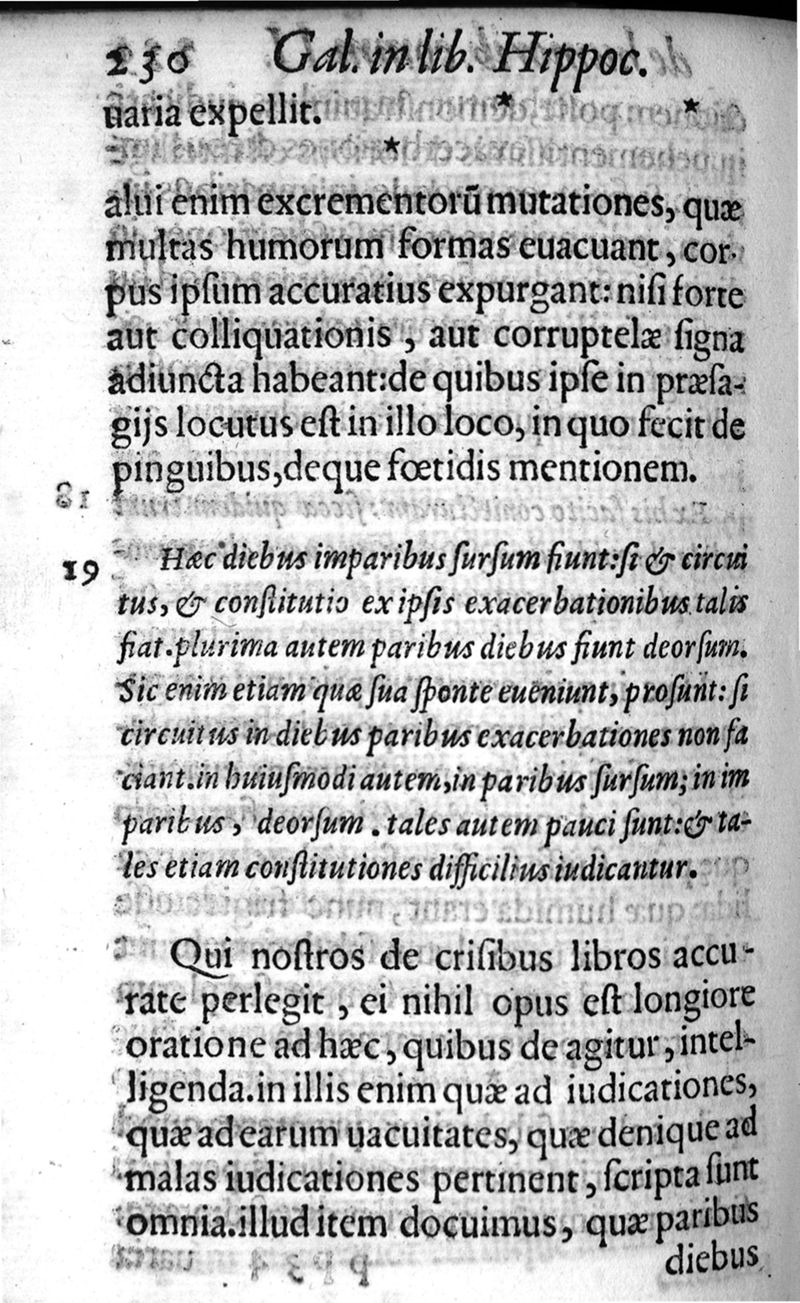 230 Gal. in lib. Hippoc.
uaria expellit. * *
*
alui enim excrementorū mutationes, quæ
multas humorum formas euacuant, cor-
pus ipſum accuratius expurgant: niſi forte
aut colliquationis, aut corruptelæ ſigna
adiuncta habeant: de quibus ipſe in præſa-
gijs locutus eſt in illo loco, in quo fecit de
pinguibus, deque fœtidis mentionem.
18
19 Hæc diebus imparibus ſurſum fiunt: ſi & circui
tus, & conſtitutio ex ipſis exacerbationibus talis
fiat. plurima autem paribus diebus fiunt deorſum.
Sic enim etiam quæ ſua ſponte eueniunt, proſunt: ſi
circuitus in diebus paribus exacerbationes non fa
ciant. in huiuſmodi autem, in paribus ſurſum; in im
paribus, deorſum. tales autem pauci ſunt: & ta-
les etiam conſtitutiones difficilius iudicantur.
Qui noſtros de criſibus libros accu-
rate perlegit, ei nihil opus eſt longiore
oratione ad hæc, quibus de agitur, intel-
ligenda. in illis enim quæ ad iudicationes,
quæ ad earum uacuitates, quæ denique ad
malas iudicationes pertinent, ſcripta ſunt
omnia. illud item docuimus, quæ paribus
diebus